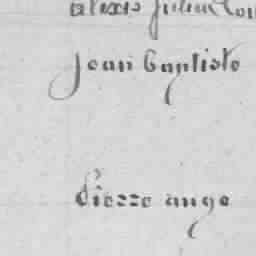 alexis julien
jean baptiste
Pierre ange